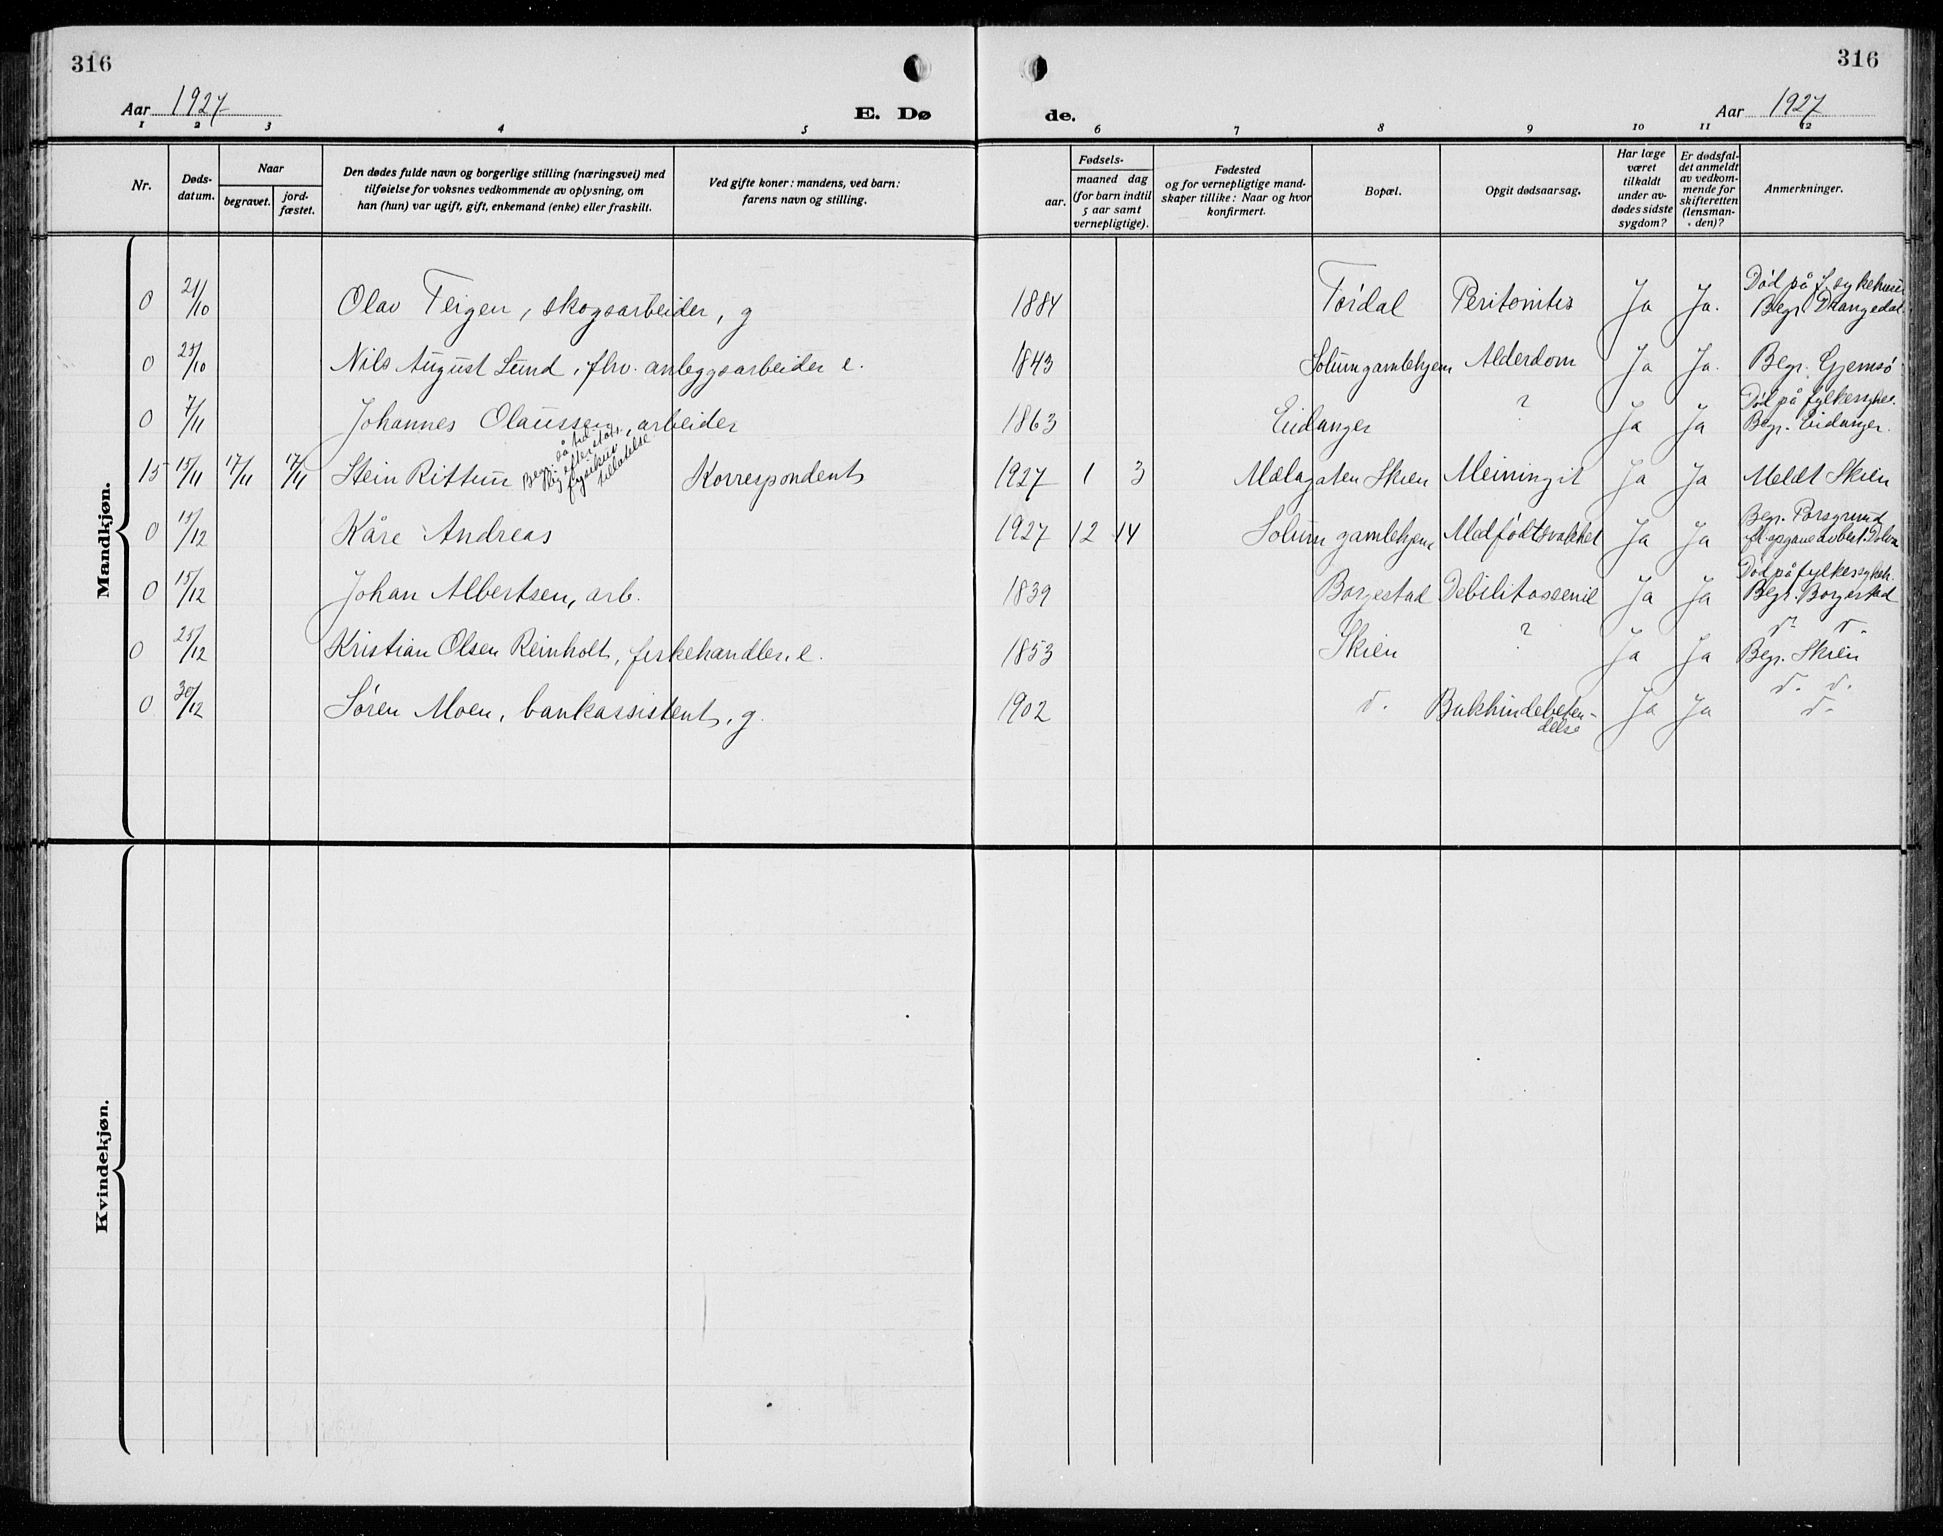 316
316
Aar 1927
E. Dø
de.
Aar 1927
1 2 3 4 5 6 7 8 9 10 11 12
Nr.
Døds-
datum.
Naar
begravet.
jord-
fæstet.
Den dødes fulde navn og borgerlige stilling (næringsvei) med
tilføielse for voksnes vedkommende av oplysning, om
han (hun) var ugift, gift, enkemand (enke) eller fraskilt.
Ved gifte koner: mandens, ved barn:
farens navn og stilling.
Fødsels-
aar.
maaned dag
(for barn indtil
5 aar samt
vernepligtige).
Fødested
og for vernepligtige mand-
skaper tillike: Naar og hvor
konfirmert.
Bopæl.
Opgit dødsaarsag.
Har læge
været
tilkaldt
under av-
dødes sidste
sygdom?
Er dødsfal-
det anmeldt
av vedkom-
mende for
skifteretten
(lensman-
den)?
Anmerkninger.
Mandkjøn.
0 21/10 Olav Teigen, skogsarbeider, g 1884 Tørdal Peritonitis Ja Ja. Død på f. sykehuset
Begr. Drangedal.
0 25/10 Nils August Lund, fhv. anleggsarbeider e. 1843 Solumgamlehjem Alderdom Ja Ja. Begr. Gjemsø
0 7/11 Johannes Olaussen, arbeider 1863 Eidanger ? Ja Ja Død på fylkessykeh.
Begr. Eidanger.
15 15/11 17/11 17/11 Stein Rittun Begr. så tid
efter
fysikus
tillatelse
Korrespondent 1927 1 3 Mælagaten Skien Meiningit Ja Ja Meldt Skien
0 15/12 Kåre Andreas 1927 12 14 Solum gamlehjem Medfødt svakhet Ja Ja Begr. Porsgrund
0 15/12 Johan Albertsen, arb. 1839 Borgestad Debilitas senil Ja Ja Død på fylkessykeh.
Begr. Borgestad
0 25/12 Kristian Olsen Reinholt, fiskehandler, e. 1853 Skien ? Ja Ja d. d.
Begr. Skien
0 30/12 Søren Moen, bankassistent, g. 1902 d. Bukhindebeten-
delse Ja Ja d. d.
d.
Kvindekjøn.